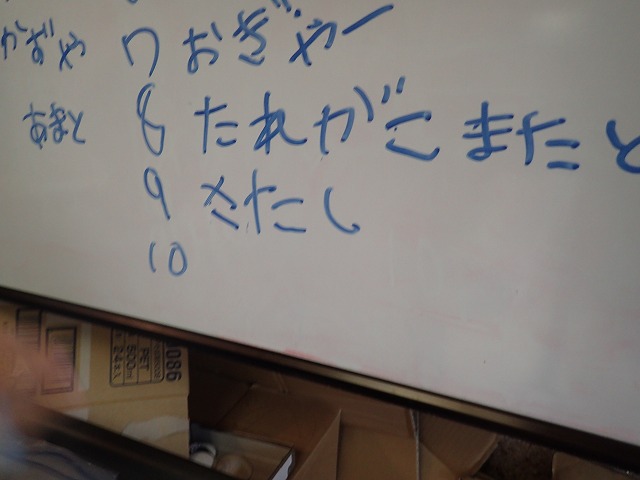 かおや 7 おぎやー
あまと 8 たれがこまたと
9 さたし
10
PET
500ml
24本入
086